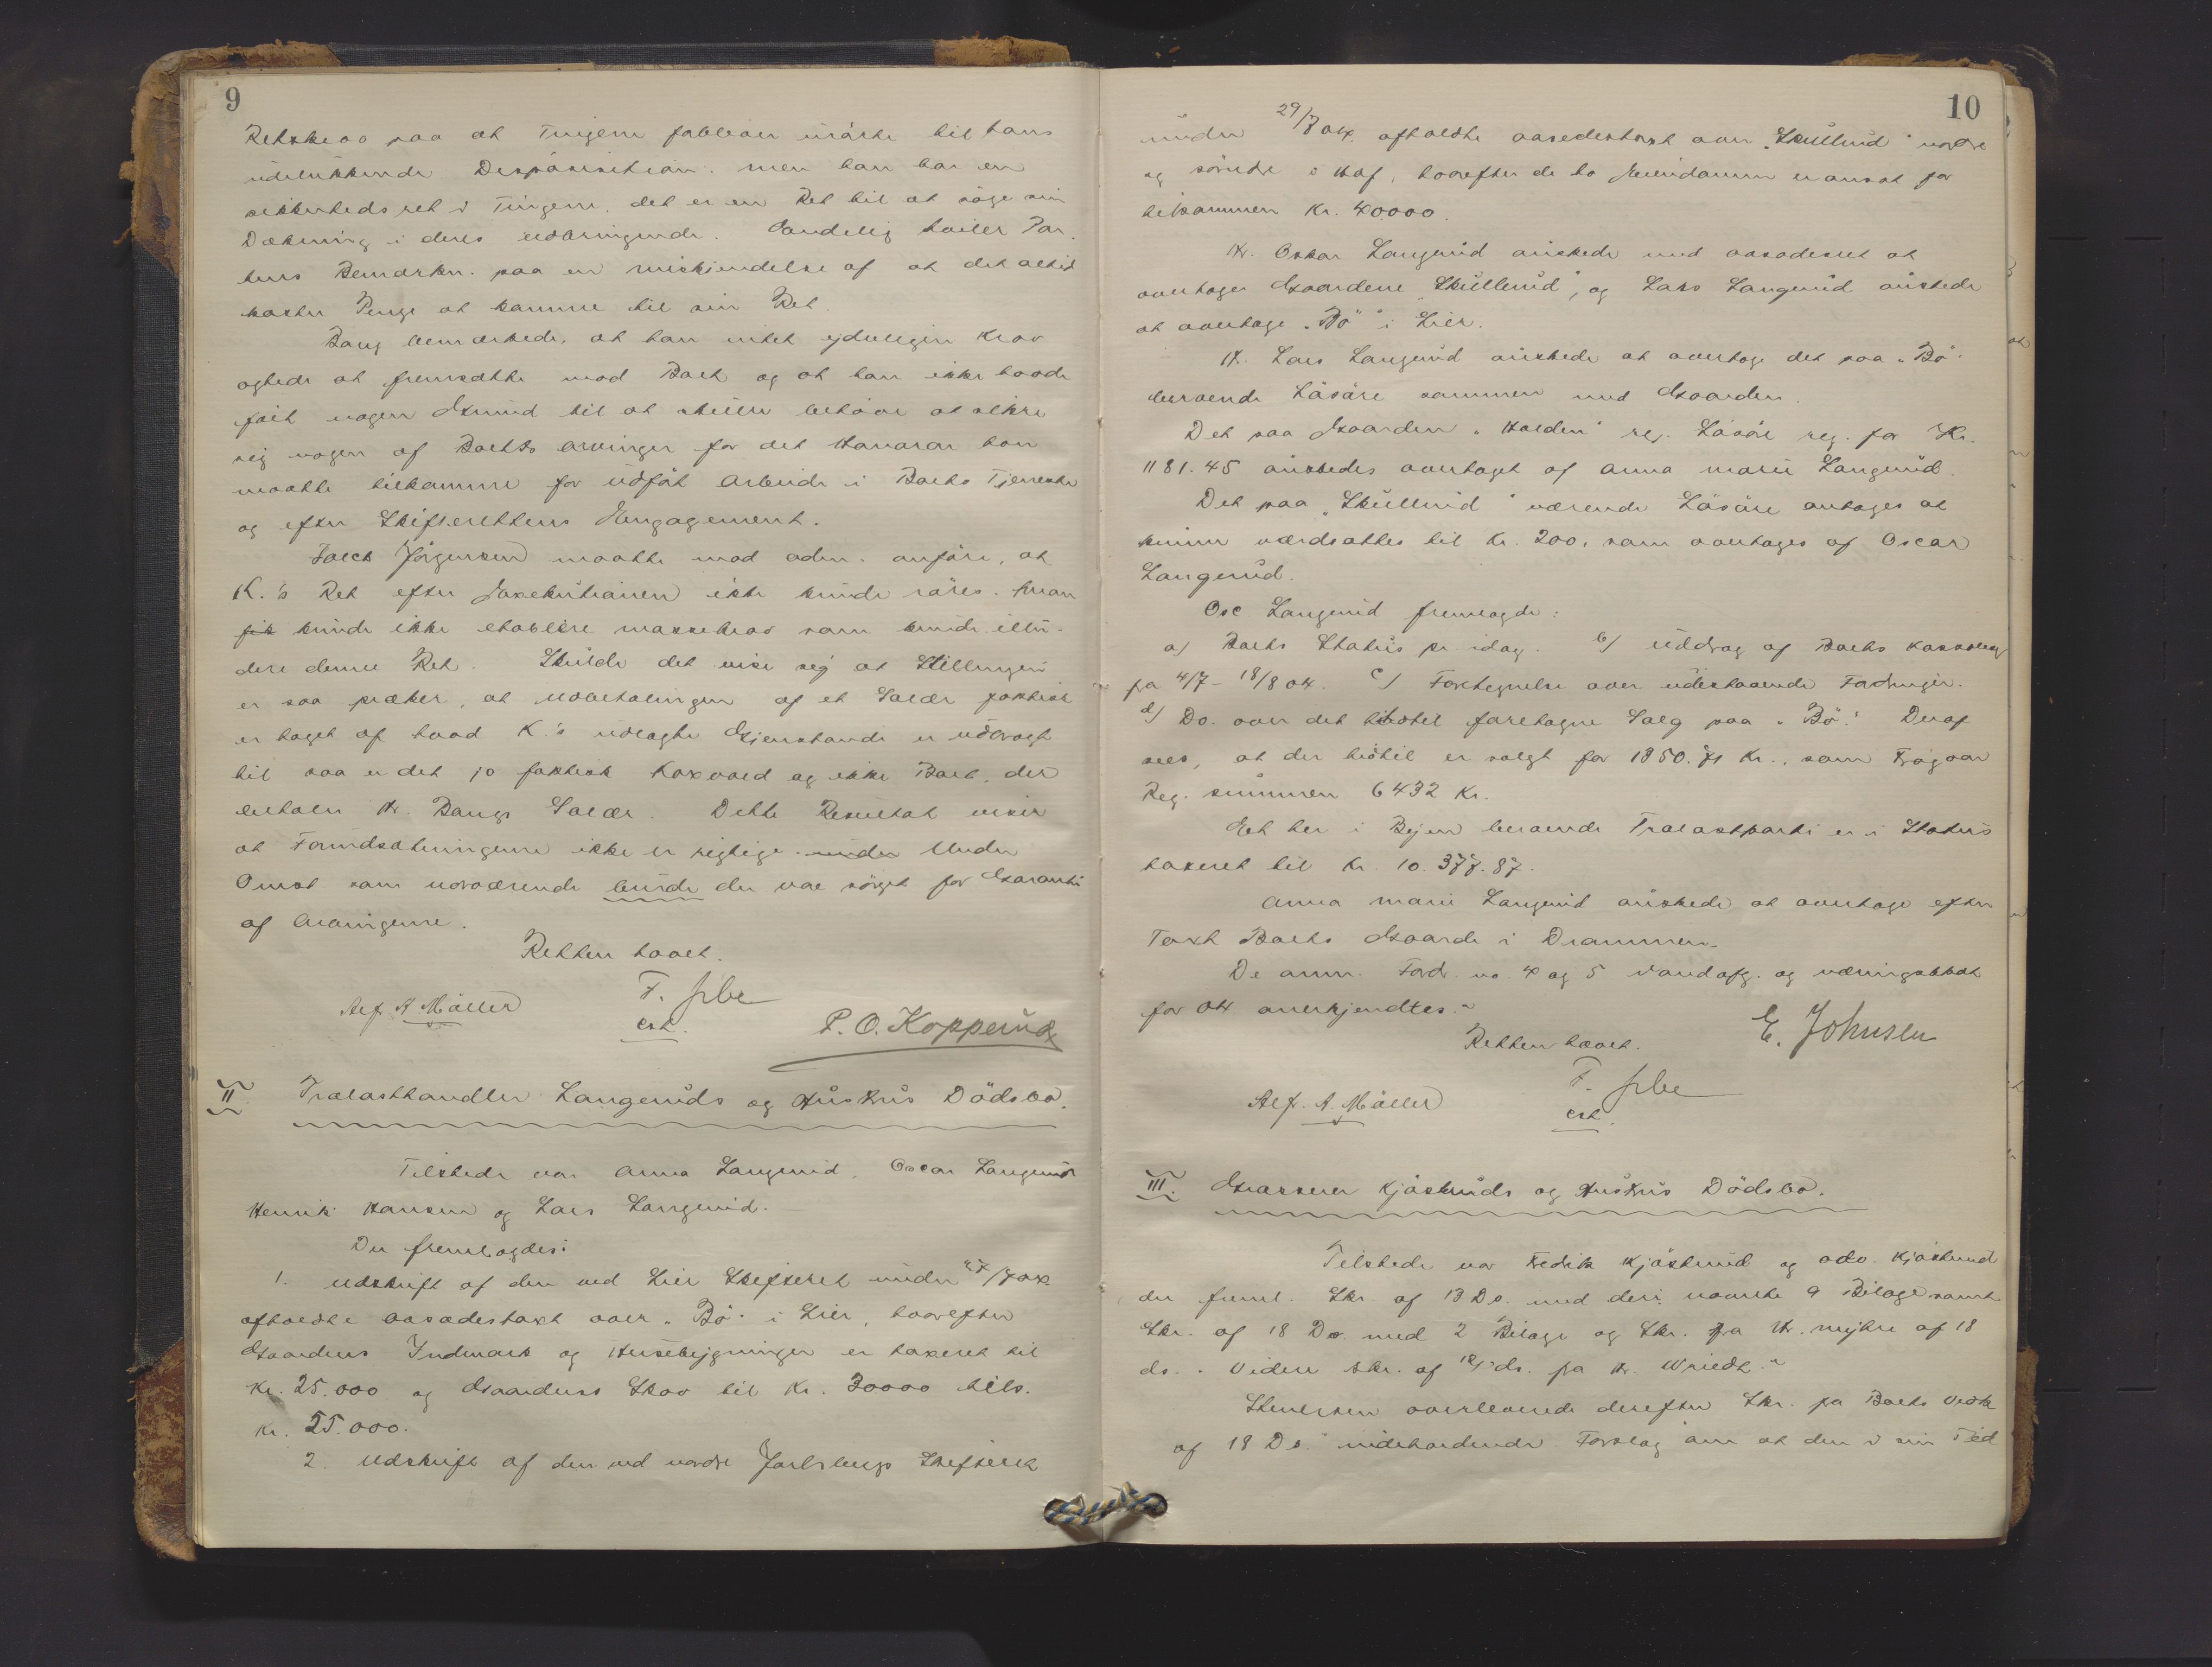 9
Retskrav paa at Tingene forbliver urørte til hans
udelukkende Desposisition. men han har en
sikkerhedsret i Tingene, det er en Ret til at søge sin
Dækning i deres udbringende. Sandelig hviler Par-
tens Bemærkn. paa en miskjendelse af at det altid
koster Penge at komme til sin Ret.
Bang bemærkede, at han intet yderligere Krav
agtede at fremsætte mod Boet og at han ikke havde
følt nogen Grund til at skulle behøve at sikre
sig nogen af Boets Arvinger for det Honorar han
maatte tilkomme for udført Arbeide i Boets Tjeneste
og efter Skifterettens Engagement.
Falck Jørgensen maatte mod adm. anføre, at
K.'s Ret efter Exekutionen ikke kunde røres. man
fik kunde ikke etablere massekrav som kunde illu-
dere denne Ret. Skulde det vise sig at Stillingen
er saa prækær, at udbetalingen af et Salær faktisk
er taget af hvad K.'s udlagte Gjenstande er udbragt
til saa er det jo faktisk Koxvold og ikke Boet, der
betaler Hr. Bangs Salær. Dette Resultat viser
at Forudsætningerne ikke er rigtige. under Under
Omst som nærværende burde der være sørget for Garanti
af Arvingerne.
Retten hævet.
Alf A Møller
F. Irbe
cst.
P. O. Kopperud
II. Trælasthandler Langeruds og Hustrus Dödsbo.
Tilstede var Anna Langerud, Oscar Langerud
Henrik Hansen og Lars Langerud.
Der fremlagdes:
1. Udskrift af den ved Lier Skifteret under 27/7 04
afholdte aasædestaxt over "Bö" i Lier, hvorefter
Gaardens Indmark og Husebygninger er taxeret til
Kr. 25.000 og Gaardens Skov til Kr. 30000 tils.
Kr. 55.000.
2. Udskrift af den ved nordre Jarlsbergs Skifteret
10
under 29/7 04 afholdte aasædestaxt over "Skullerud" nordre
og söndre i Hof, hvorefter de to Eiendomme er ansat for
tilsammen Kr. 40000.
Hr. Oskar Langerud ønskede med aasædesret at
overtage Gaardene "Skullerud", og Lars Langerud ønskede
at overtage "Bö" i Lier.
Hr. Lars Langerud ønskede at overtage det paa "Bö"
beroende Løsøre sammen med Gaarden.
Det paa Gaarden "Holden" reg. Løsøre reg. for Kr.
1181.45 ønskedes overtaget af Anna Marie Langerud.
Det paa "Skullerud" værende Løsøre antages at
kunne værdsættes til Kr. 200, som overtages af Oscar
Langerud.
Osc Langerud fremlagde:
a) Boets Status pr. idag. b) Uddrag af Boets kassabog
fra 4/7 - 18/8 04. c) Fortegnelse over udestaaende Fordringer.
d) Do. over det hidtil foretagne Salg paa "Bö". Deraf
sees, at der hidtil er solgt for 1350.71 Kr., som
Reg. summen 6432 Kr.
Et her i Byen beroende Trælastparti er i Status
taxeret til Kr. 10.377.87.
Anna Marie Langerud ønskede at overtage efter
Taxt Boets Gaarde i Drammen.
De anm. Ford. no 4 og 5 Vandafg. og næringsskat
for 04 anerkjendtes.
Retten hævet.
E. Johnsen
Alf. A. Møller
F. Irbe
cst.
III. Garver Kjøsteruds og Hustrus Dödsbo.
Tilstede var Fredrik Kjøsterud og adv. Kjøsterud
der freml. Skr. af 13 Ds. med deri nævnte 9 Bilage samt
Skr. af 18 Ds. med 2 Bilage og Skr. fra Hr. Myhre af 18
ds. Videre skr. af ds. fra Hr. Wriedt.
Stenersen overleverede derefter Skr. fra Boets Vedk
af 18 Ds. indeholdende Forslag om at den i sin Tid